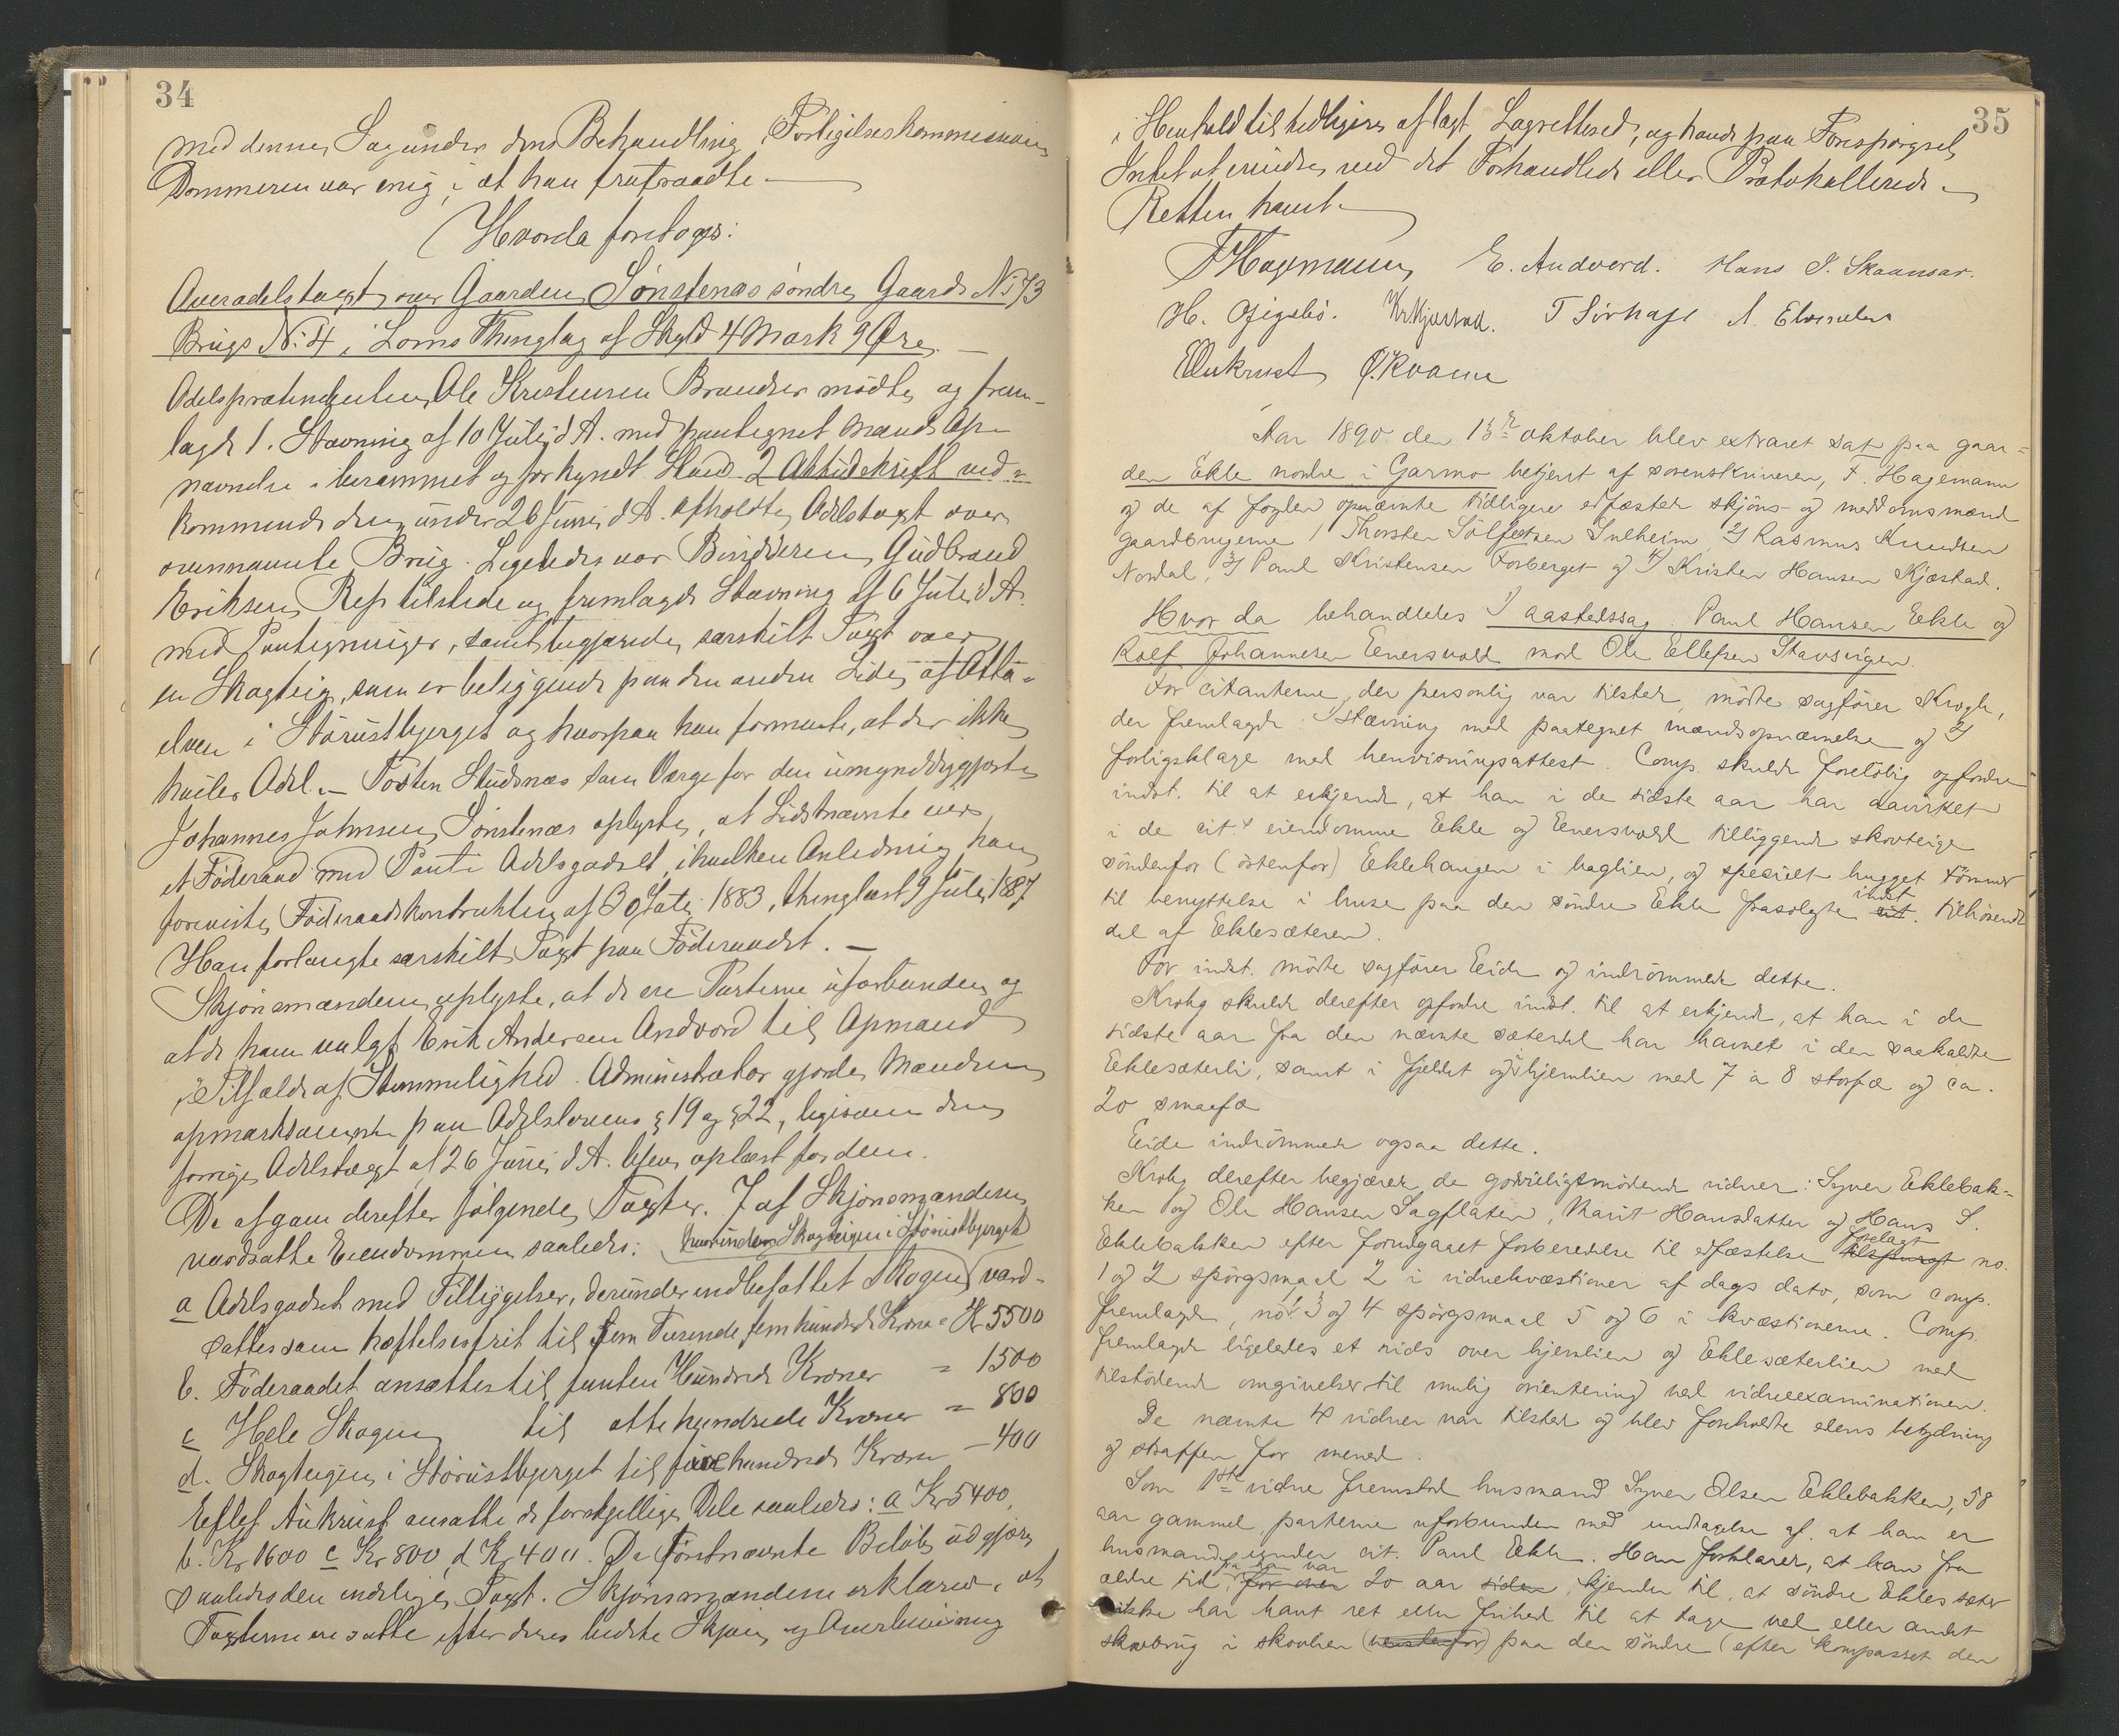 34
med denne Sag under dens Behandling i Forligelseskommissionen
Dommeren var enig i at han fratraadte.
Hvorda foretoges:
Overodelstaxt over Gaarden Sønstenæs søndre Gaards No 73
Brugs No: 4 i Loms Thinglag af Skyld 4 Mark 9 Øre.
Odelsprætendenten Ole Kristensen Brandser mødte og frem-
lagde 1. Stævning af 10 Juli d A. med paategnet Mænds Op-
nævnelse, berammet og forkyndt samt 2 Aktudskrift ved-
kommende den under 26 Juni d A. afholdte Odelstaxt over
ovennævnte Brug. Ligeledes var Besidderen Gudbrand
Eriksen Ref tilstede og fremlagde Stævning af 6 Juli d A.
med Paategninger, samt begjærede særskilt Taxt over
en Skogteig, som er beliggende paa den anden Side af Otta-
elven i Størustbjerget og hvorpaa han formente, at der ikke
hviler Odel. Tosten Studsnæs som Værge for den umyndiggjorte
Johannes Johnsen Sønstenæs oplyste, at Sidstnævnte har
et Føderaad med Pant i Odelsgodset, i hvilken Anledning han
foreviste Føderaadskontrakten af 30 Juli 1883, thinglæst 9 Juli 1887
Han forlangte særskilt Taxt paa Føderaadet.
Skjønsmændene oplyste, at de ere Parterne uforbunden og
at de have valgt Erik Andersen Andvord til Opmand
i Tilfælde af Stemmelighed. Administrator gjorde Mændene
opmærksomme paa Odelslovens § 19 og § 22, ligesom den
forrige Odelstaxt af 26 Juni d A. blev oplæst for dem.
De afgav derefter følgende Taxter. 7 af Skjønsmændene
værdsatte Eiendommen saaledes: hvorunder Skogteigen i Størustbjerget
a Odelsgodset med Tilliggelser, derunder indbefattet Skogen værd-
sattes som heftelsesfrit til fem Tusende fem hundrede Kroner = Kr 5500
b. Føderaadet ansættes til femten Hundrede Kroner = 1500
c Hele Skogen til otte hundrede Kroner = 800
d. Skogteigen i Størustbjerget til fire hundrede Kroner – 400
Eeflef Aukrust ansatte de forskjellige Dele saaledes: a Kr 5400,
b. Kr 1600 c Kr 800, d Kr 400. De førstnævnte Beløb udgjøre
saaledes den endelige Taxt. Skjønsmændene erklærer, at
Taxterne ere satte efter deres bedste Skjøn og Overbevisning
35
i Henhold til tidligere aflagt Lagrettesed, og havde paa Forespørgsel
Intet at erindre ved det Forhandlede eller Protokollerede.
Retten hævet.
F Hagemann E. Andvord. Hans P. Skaansar.
H. Gjeilo. T Sørhage
EAukrust O. Kvaam
Aar 1890 den 13de oktober blev extraret sat paa gaar=
den Ekle nordre i Garmo betjent af sorenskriveren, F. Hagemann
og de af fogden opnævnte tidligere edfæstede skjøns- og meddomsmænd
gaardbrugerne 1/ Thorsten Sølfestsen Sulheim, 2/ Rasmus Knudsen
Nordal, 3/ Paul Kristensen Forberget og 4/ Kristen Hansen Kjæstad.
Hvor da behandledes 1/ aastedssag: Paul Hansen Ekle og
Rolf Johannesen Eenersvold mod Ole Ellefsen Stavsengen.
For citanterne, der personlig var tilstede, mødte sagfører Krogh,
der fremlagde 1/ stævning med paategnet mændsopnævnelse og 2/
forligsklage med henvisningsattest. Comp. skulde foreløbig opfordre
indst. til at erkjende, at han i de sidste aar har davirket
i de cit.s eiendomme Ekle og Eenersvold tilliggende skovteige
søndenfor (østenfor) Eklehaugen i baglien, og specielt hugget tømmer
til benyttelse i huse paa den søndre Ekle frasolgte cit. indst. tilhørende
del af Eklesæteren.
For indst. mødte sagfører Eide og indrømmede dette.
Krohg skulde derefter opfordre indst. til at erkjende, at han i de
sidste aar fra den nævnte sæterdel har havnet i den saakaldte
Eklesæterli, samt i fjeldet og i hjemlien med 7 a 8 storfæ og ca.
20 smaafæ
Eide indrømmede ogsaa dette.
Krohg derefter begjærede de godvilligtmødende vidner: Syver Eklebak=
ken og Ole Hansen Sagflaten, Marit Hansdatter og Hans S.
Eklebakken efter forudgaaet forberedelse til edfæstelse tilspurgt forelagt no.
1 og 2 spørgsmaal 2 i vidnekvæstioner af dags dato, som comp.
fremlagde, no. 1, 3 og 4 spørgsmaal 5 og 6 i kvæstionerne. Comp.
fremlagde ligeledes et rids over hjemlien og Eklesæterlien med
tilstødende omgivelser til mulig orientering ved vidneexaminationen.
De nævnte 4 vidner var tilstede og blev foreholdt edens betydning
og straffen for mened.
Som 1ste vidne fremstod husmand Syver Olsen Eklebakken, 58
aar gammel, parterne uforbunden med undtagelse af, at han er
husmand under cit. Paul Ekle. Han forklarer, at han fra
ældre tid, for over fra han var 20 aar siden, kjender til, at søndre Ekles sæter
ikke har havt ret eller frihed til at tage ved eller andet
skovbrug i skovlien (vestenfor) paa den søndre (efter kompasset den